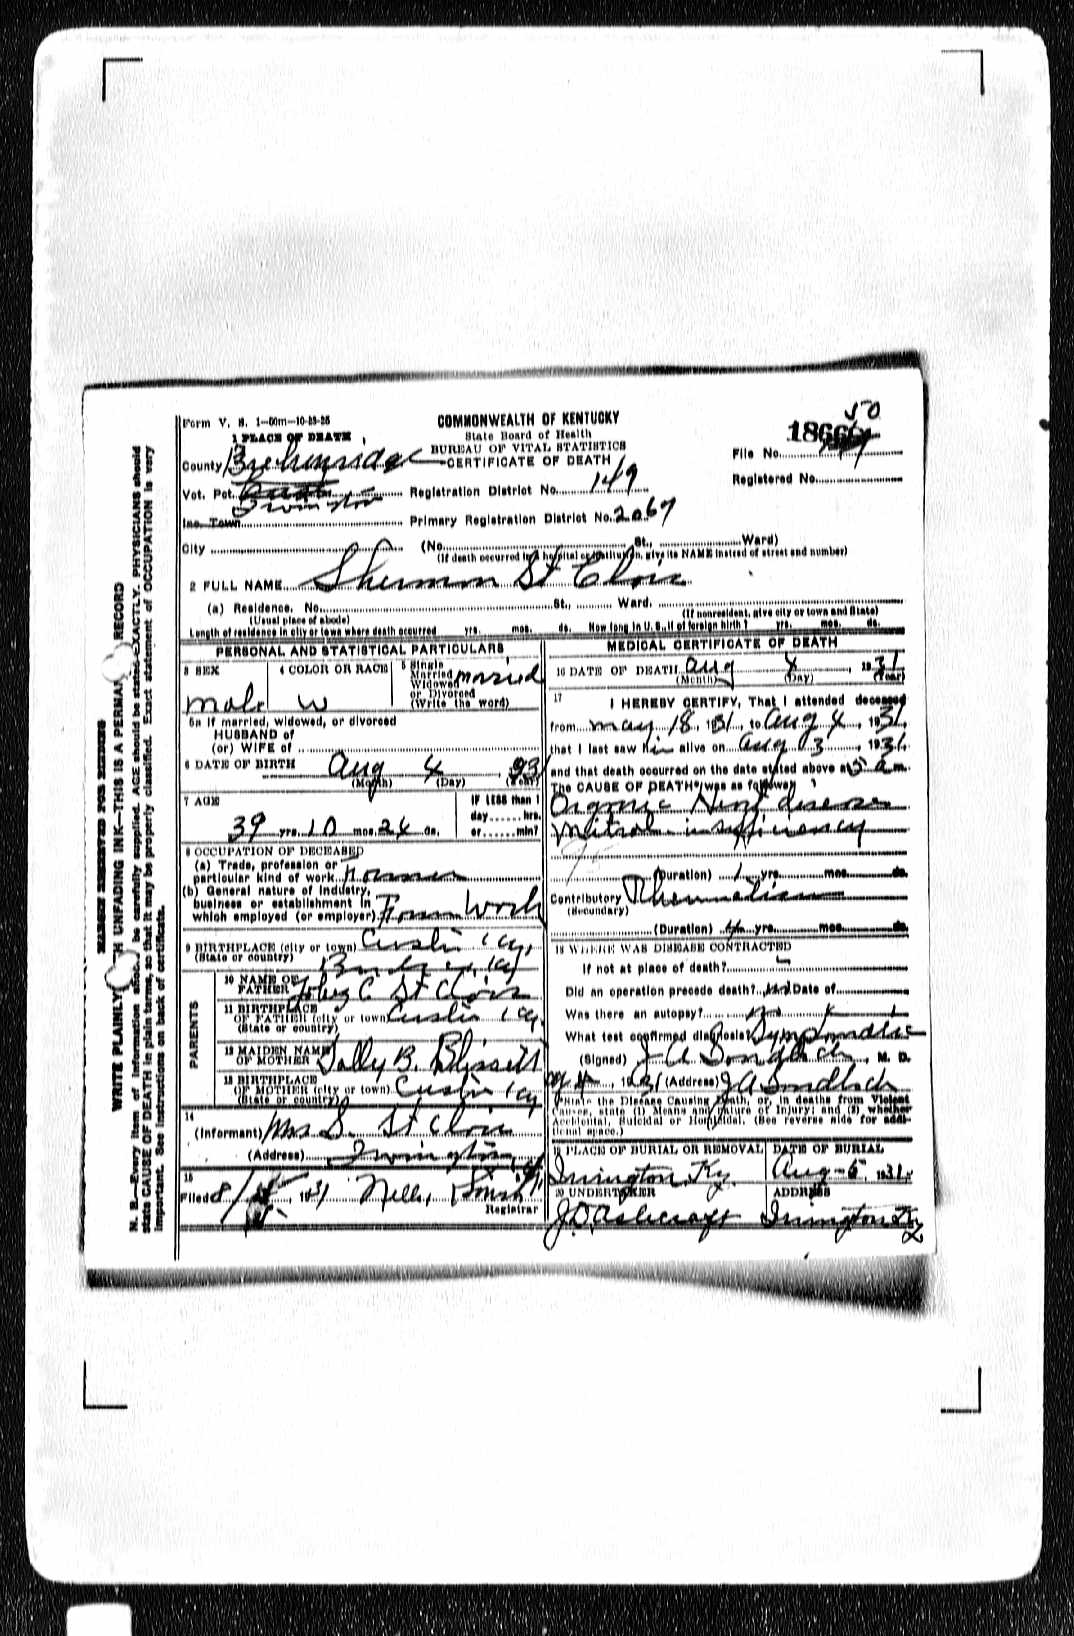 Form V. S. 1-50m-10-23-25
COMMONWEALTH OF KENTUCKY
State Board of Health
BUREAU OF VITAL STATISTICS
CERTIFICATE OF DEATH
50
File No.
Registered No.
1 PLACE OF DEATH
County Breckenridge
Vot. Pct. Irvington
Registration District No. 149
Inc. Town
Primary Registration District No. 2067
City (No. St., Ward)
(If death occurred in a hospital or institution, give its NAME instead of street and number)
2 FULL NAME Sherman St Clair
(a) Residence. No. St., Ward.
(Usual place of abode) (If nonresident, give city or town and State)
Length of residence in city or town where death occurred yrs. mos. ds. How long in U. S., if of foreign birth? yrs. mos. ds.
PERSONAL AND STATISTICAL PARTICULARS
3 SEX
male
4 COLOR OR RACE
w
5 Single
Married
Widowed
or Divorced
(Write the word)
married
5a If married, widowed, or divorced
HUSBAND of
(or) WIFE of
6 DATE OF BIRTH Aug 4
(Month) (Day) (Year)
7 AGE
39 yrs. 10 mos. 24 ds.
IF LESS than 1
day hrs.
or min?
8 OCCUPATION OF DECEASED
(a) Trade, profession or
particular kind of work Farmer
(b) General nature of industry,
business or establishment in
which employed (or employer) Farm Work
9 BIRTHPLACE (city or town) Custer Ky.
(State or country)
PARENTS
10 NAME OF
FATHER C St Clair
11 BIRTHPLACE
OF FATHER (city or town) Custer Ky.
(State or country)
12 MAIDEN NAME
OF MOTHER Sally B. Blissett
13 BIRTHPLACE
OF MOTHER (city or town) Custer Ky
(State or country)
14
(Informant) Mrs S. St Clair
(Address) Irvington, Ky
15
Filed 8/ , 1931 Nell
Registrar
MEDICAL CERTIFICATE OF DEATH
16 DATE OF DEATH Aug 4 1931
(Month) (Day) (Year)
17 I HEREBY CERTIFY, That I attended deceased
from may 18, 1931, to Aug 4, 1931
that I last saw him alive on Aug 3, 1931.
and that death occurred on the date stated above at 5 a m.
The CAUSE OF DEATH* was as follows:
Organic Heart disease
Mitral insufficiency
(Duration) 1 yrs. mos. ds.
Contributory Rheumatism
(Secondary)
(Duration) 4 yrs. mos. ds.
18 WHERE WAS DISEASE CONTRACTED
If not at place of death?
Did an operation precede death? no Date of
Was there an autopsy? no
What test confirmed diagnosis?
(Signed) J A , M. D.
, 1931 (Address) J A
*State the Disease Causing Death, or, in deaths from Violent
Causes, state (1) Means and Nature of Injury; and (2), whether
Accidental, Suicidal or Homicidal. (See reverse side for addi-
tional space.)
19 PLACE OF BURIAL OR REMOVAL
Irvington Ky.
DATE OF BURIAL
Aug-5, 1931
20 UNDERTAKER
J. D. Ashcraft
ADDRESS
Irvington Ky
MARGIN RESERVED FOR BINDING
WRITE PLAINLY WITH UNFADING INK—THIS IS A PERMANENT RECORD
N. B.—Every item of information should be carefully supplied. AGE should be stated EXACTLY. PHYSICIANS should
state CAUSE OF DEATH in plain terms, so that it may be properly classified. Exact statement of OCCUPATION is very
important. See instructions on back of certificate.